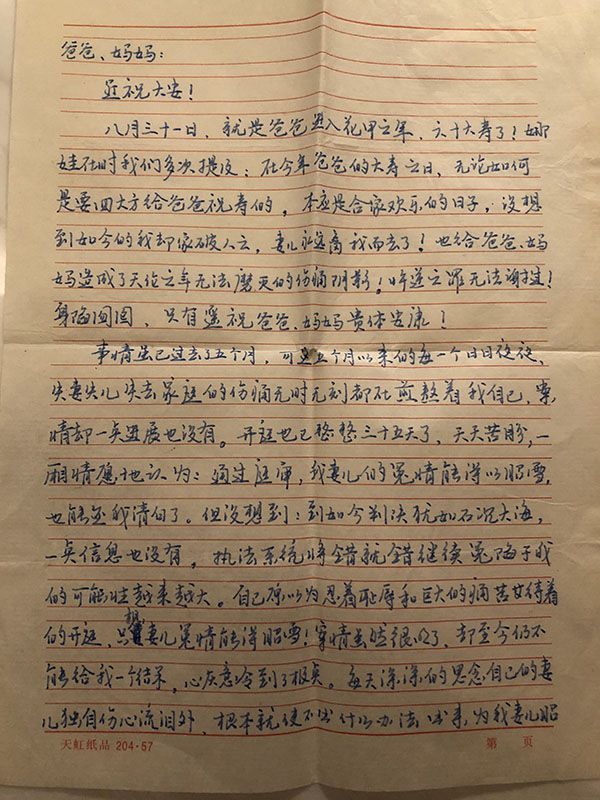 爸爸、妈妈：
近祝大安！
八月三十一日，就是爸爸进入花甲之年，六十大寿了！娜
娃在时我们多次提及：在今年爸爸的大寿之日，无论如何
是要回大方给爸爸祝寿的，本应是合家欢乐的日子，没想
到如今的我却家破人亡，妻儿永远离我而去了！也给爸爸、妈
妈造成了天伦之年无法磨灭的伤痛阴影！忤逆之罪无法谢过！
身陷囹圄，只有遥祝爸爸、妈妈贵体安康！
事情虽已过去了五个月，可这五个月以来的每一个日日夜夜，
失妻失儿失去家庭的伤痛无时无刻都在煎熬着我自己，案
情却一点进展也没有。开庭也已整整三十五天了，天天苦盼，一
厢情愿地认为：通过庭审，我妻儿的冤情能得以昭雪，
也能还我清白了。但没想到：到如今判决犹如石沉大海，
一点信息也没有，执法系统将错就错继续冤陷于我
的可能性越来越大。自己原以为忍着耻辱和巨大的痛苦等待着
的开庭，只想妻儿冤情能得昭雪！案情虽然很明了，却至今仍不
能给我一个结果，心灰意冷到了极点。每天深深的思念自己的妻
儿独自伤心流泪外，根本就使不出什么办法出来，为我妻儿昭
天虹纸品 204-57
第 页